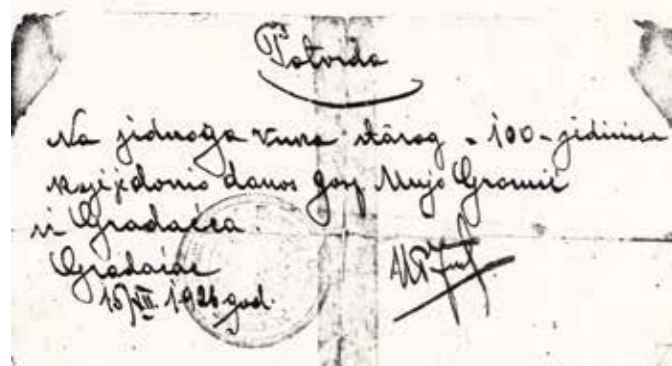 Potvrda
Na jednoga vuna starog - 100 - jedinicu
koji je donio danas gosp Mujo Gromić
iz Gradačca.
Gradačac
15/VII. 1926 god.